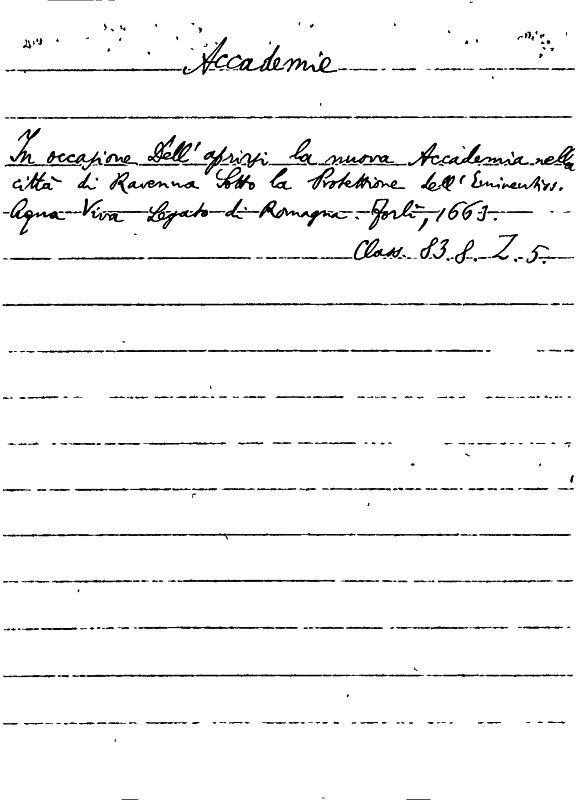 Accademie
In occasione Dell' aprirsi la nuova Accademia nella
città di Ravenna Sotto la Protettione dell' Eminentiss.
Aqua Viva Legato di Romagna. Forlì, 1663.
Class. 83.8. Z. 5.